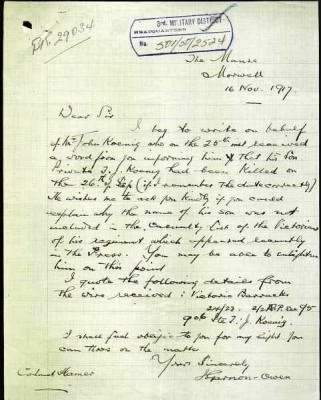 B.R. 29034
3rd. MILITARY DISTRICT
HEADQUARTERS
No.
The Manse
Morwell
16 Nov. 1917
Dear Sir
I beg to write on behalf
of Mr John Koenig who on the 25th received
a word from you informing him that his son
Private J. Koenig had been killed on
the 26th of Sep (if I remember the date correctly)
He wishes me to ask you kindly if you could
explain why the name of his son was not
included in the Casualty List of the Victorians
of his regiment which appeared recently
in the Press. You may be able to enlighten
him on this point
I quote the following details from
the wire received: Victoria Barracks
I shall feel obliged to you for any light you
can throw on the matter
Yours Sincerely